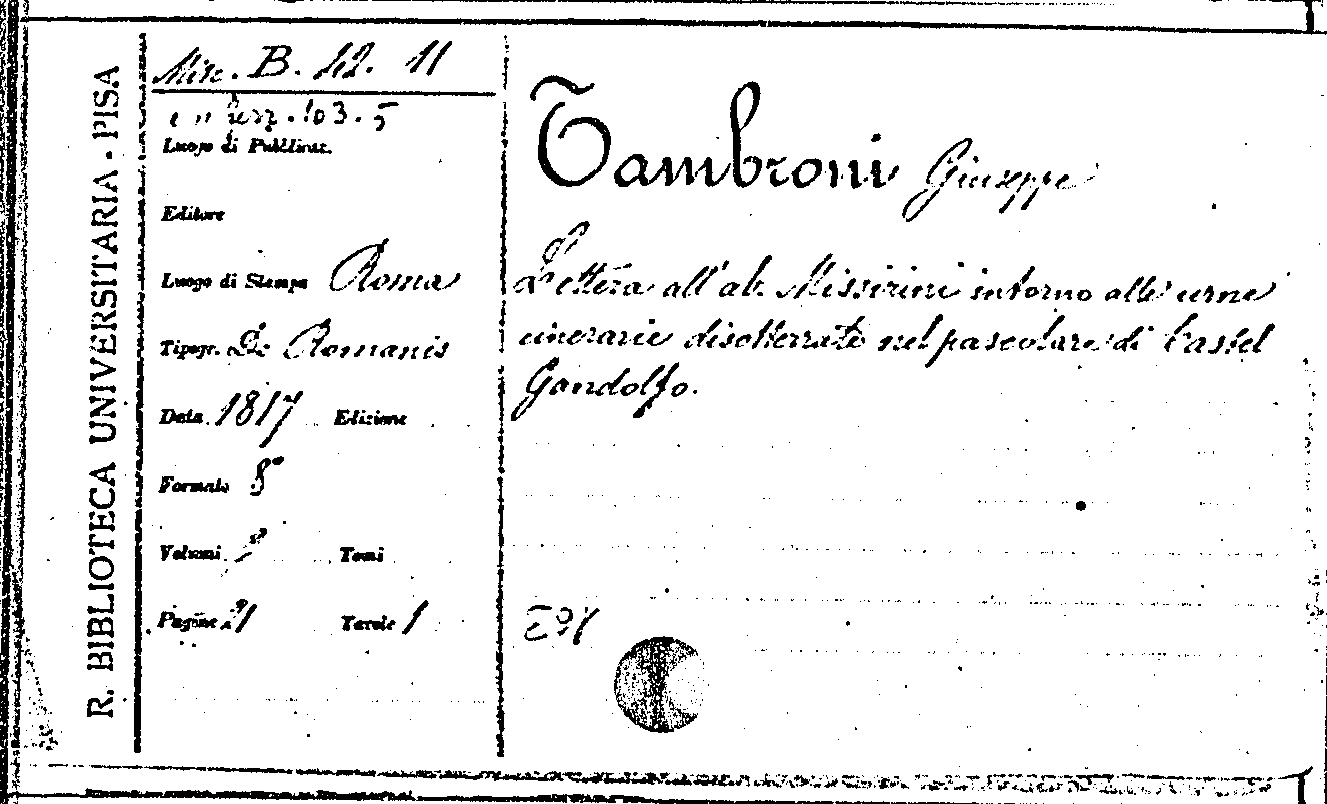 R. BIBLIOTECA UNIVERSITARIA - PISA
Misc. B. 42. 11
103.5
Luogo di Pubblicaz.
Editore
Luogo di Stampa Roma
Tipogr. De Romanis
Data 1817 Edizione
Formato 8°
Volumi Tomi
Pagine 21 Tavole 1
Tambroni Giuseppe
Lettera all'ab. Missirini intorno alle urne
cinerarie disotterrate nel pascolare di Castel
Gandolfo.